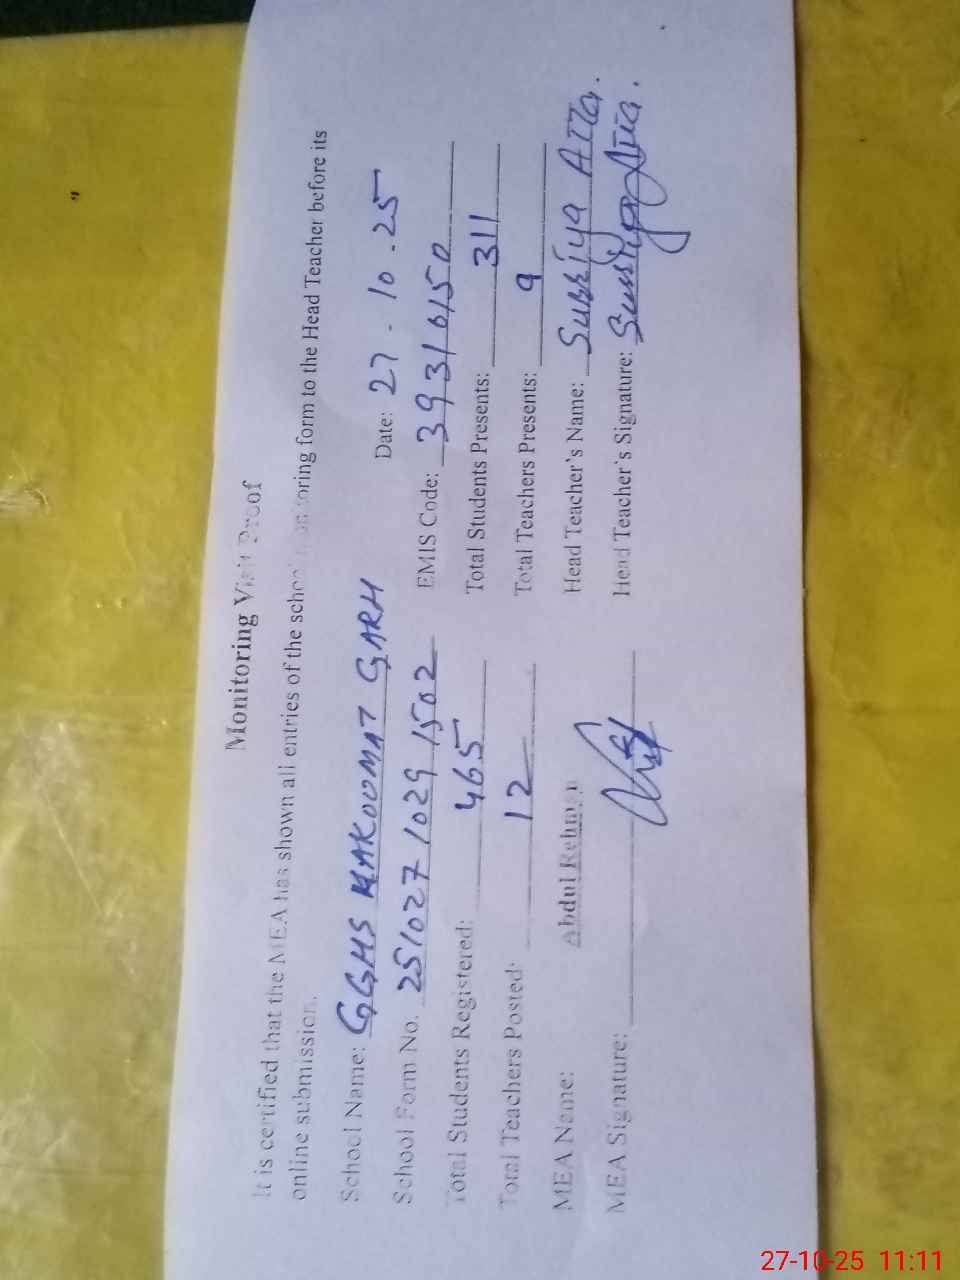 Monitoring Visit Proof
It is certified that the MEA has shown all entries of the school monitoring form to the Head Teacher before its
online submission.
School Name: GGHS HAKOOMAT GARH Date: 27-10-25
School Form No. 25102710291502 EMIS Code: 39310150
Total Students Registered: 465 Total Students Presents: 311
Total Teachers Posted: 12 Total Teachers Presents: 9
MEA Name: Abdul Rehman Head Teacher's Name: Surriya Atta.
MEA Signature: Head Teacher's Signature: Surriya Atta.
27-10-25 11:11